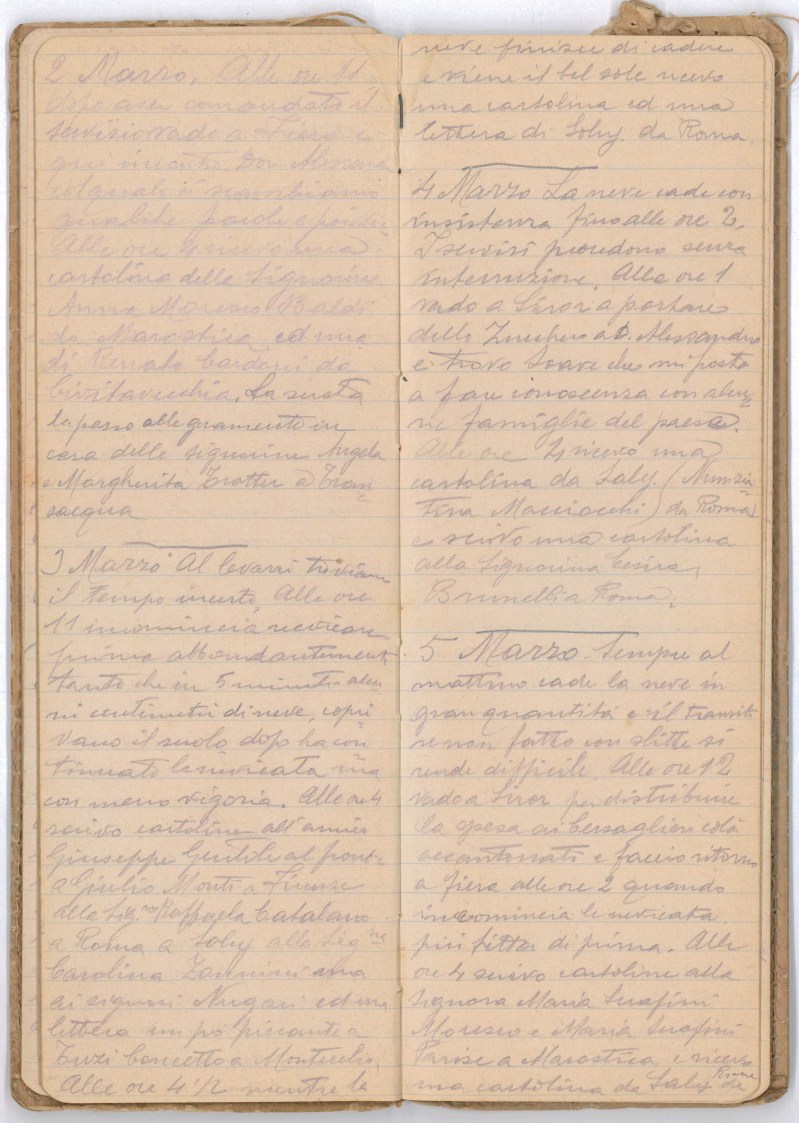 2 Marzo. Alle ore 11
dopo aver comandato il
servizio vado a Fiera e
qui incontro Don Alessandro
col quale ci scambiamo
qualche parola e poi
Alle ore 4 ricevo una
cartolina delle Signorine
Anna Moresco Baldi
da Marostica ed una
di Renato Cardoni da
Civitavecchia. La serata
la passo allegramente in
casa delle signorine Angela
e Margherita Trotter a Tran=
sacqua
3 Marzo Al levarsi troviamo
il tempo incerto. Alle ore
11 incomincia nevicare
prima abbondantemente
tanto che in 5 minuti alcu=
ni centimetri di neve, copri=
vano il suolo dopo ha con=
tinuato la nevicata ma
con meno vigoria. Alle ore 4
scrivo cartoline all'amico
Giuseppe Gentile al fronte
a Giulio Monti a Firenze
alla Sig.na Raffaela Catalano
a Roma a Saly alla Sig.na
Carolina Zannini una
ai signori Nugari ed una
lettera un pò piccante a
Tuzi Concetto a Montecelio
Alle ore 4 1/2 mentre la
neve finisce di cadere
e viene il bel sole ricevo
una cartolina ed una
lettera di Saly. da Roma.
4 Marzo La neve cade con
insistenza fino alle ore 2.
I servizi procedono senza
interruzione. Alle ore 1
vado a Siror a portare
dello Zucchero a D. Alessandro
e trovo Soave che mi porta
a fare conoscenza con alcu=
ne famiglie del paese.
Alle ore 4 ricevo una
cartolina da Saly. (Nunzia=
tina Macciocchi) da Roma
e scrivo una cartolina
alla Signorina Cesira
Brunelli a Roma.
5 Marzo Sempre al
mattino cade la neve in
gran quantità e il transito
se non fatto con slitte si
rende difficile. Alle ore 12
vado a Siror per distribuire
la spesa ai bersaglieri colà
accantonati e faccio ritorno
a fiera alle ore 2 quando
incomincia la nevicata
più fitta di prima. Alle
ore 4 scrivo cartoline alla
Signora Maria Serafini
Moresco e Maria Serafini
Parise a Marostica e ricevo
una cartolina da Saly da Roma